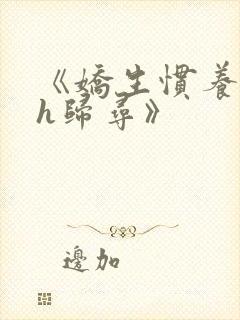 《嬌生慣養
h歸尋》
邊加